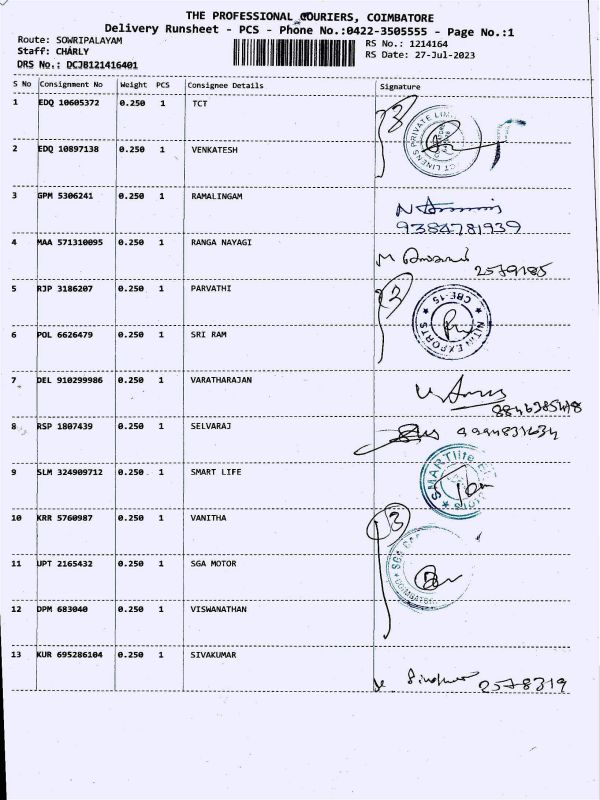 THE PROFESSIONAL COURIERS, COIMBATORE
Delivery Runsheet - PCS - Phone No.:0422-3505555 - Page No.:1
Route: SOWRIPALAYAM RS No.: 1214164
Staff: CHARLY RS Date: 27-Jul-2023
DRS No.: DCJB121416401
S No Consignment No Weight PCS Consignee Details Signature
1 EDQ 10605372 0.250 1 TCT
2 EDQ 10897138 0.250 1 VENKATESH
3 GPM 5306241 0.250 1 RAMALINGAM
9384781939
4 MAA 571310095 0.250 1 RANGA NAYAGI
2579185
5 RJP 3186207 0.250 1 PARVATHI
2
NITIN EXPORTS CBE-15
6 POL 6626479 0.250 1 SRI RAM
7 DEL 910299986 0.250 1 VARATHARAJAN
8 RSP 1807439 0.250 1 SELVARAJ
9 SLM 324909712 0.250 1 SMART LIFE
SMARTlife
10 KRR 5760987 0.250 1 VANITHA
3
11 UPT 2165432 0.250 1 SGA MOTOR
SGA
12 DPM 683040 0.250 1 VISWANATHAN
13 KUR 695286104 0.250 1 SIVAKUMAR
2578319